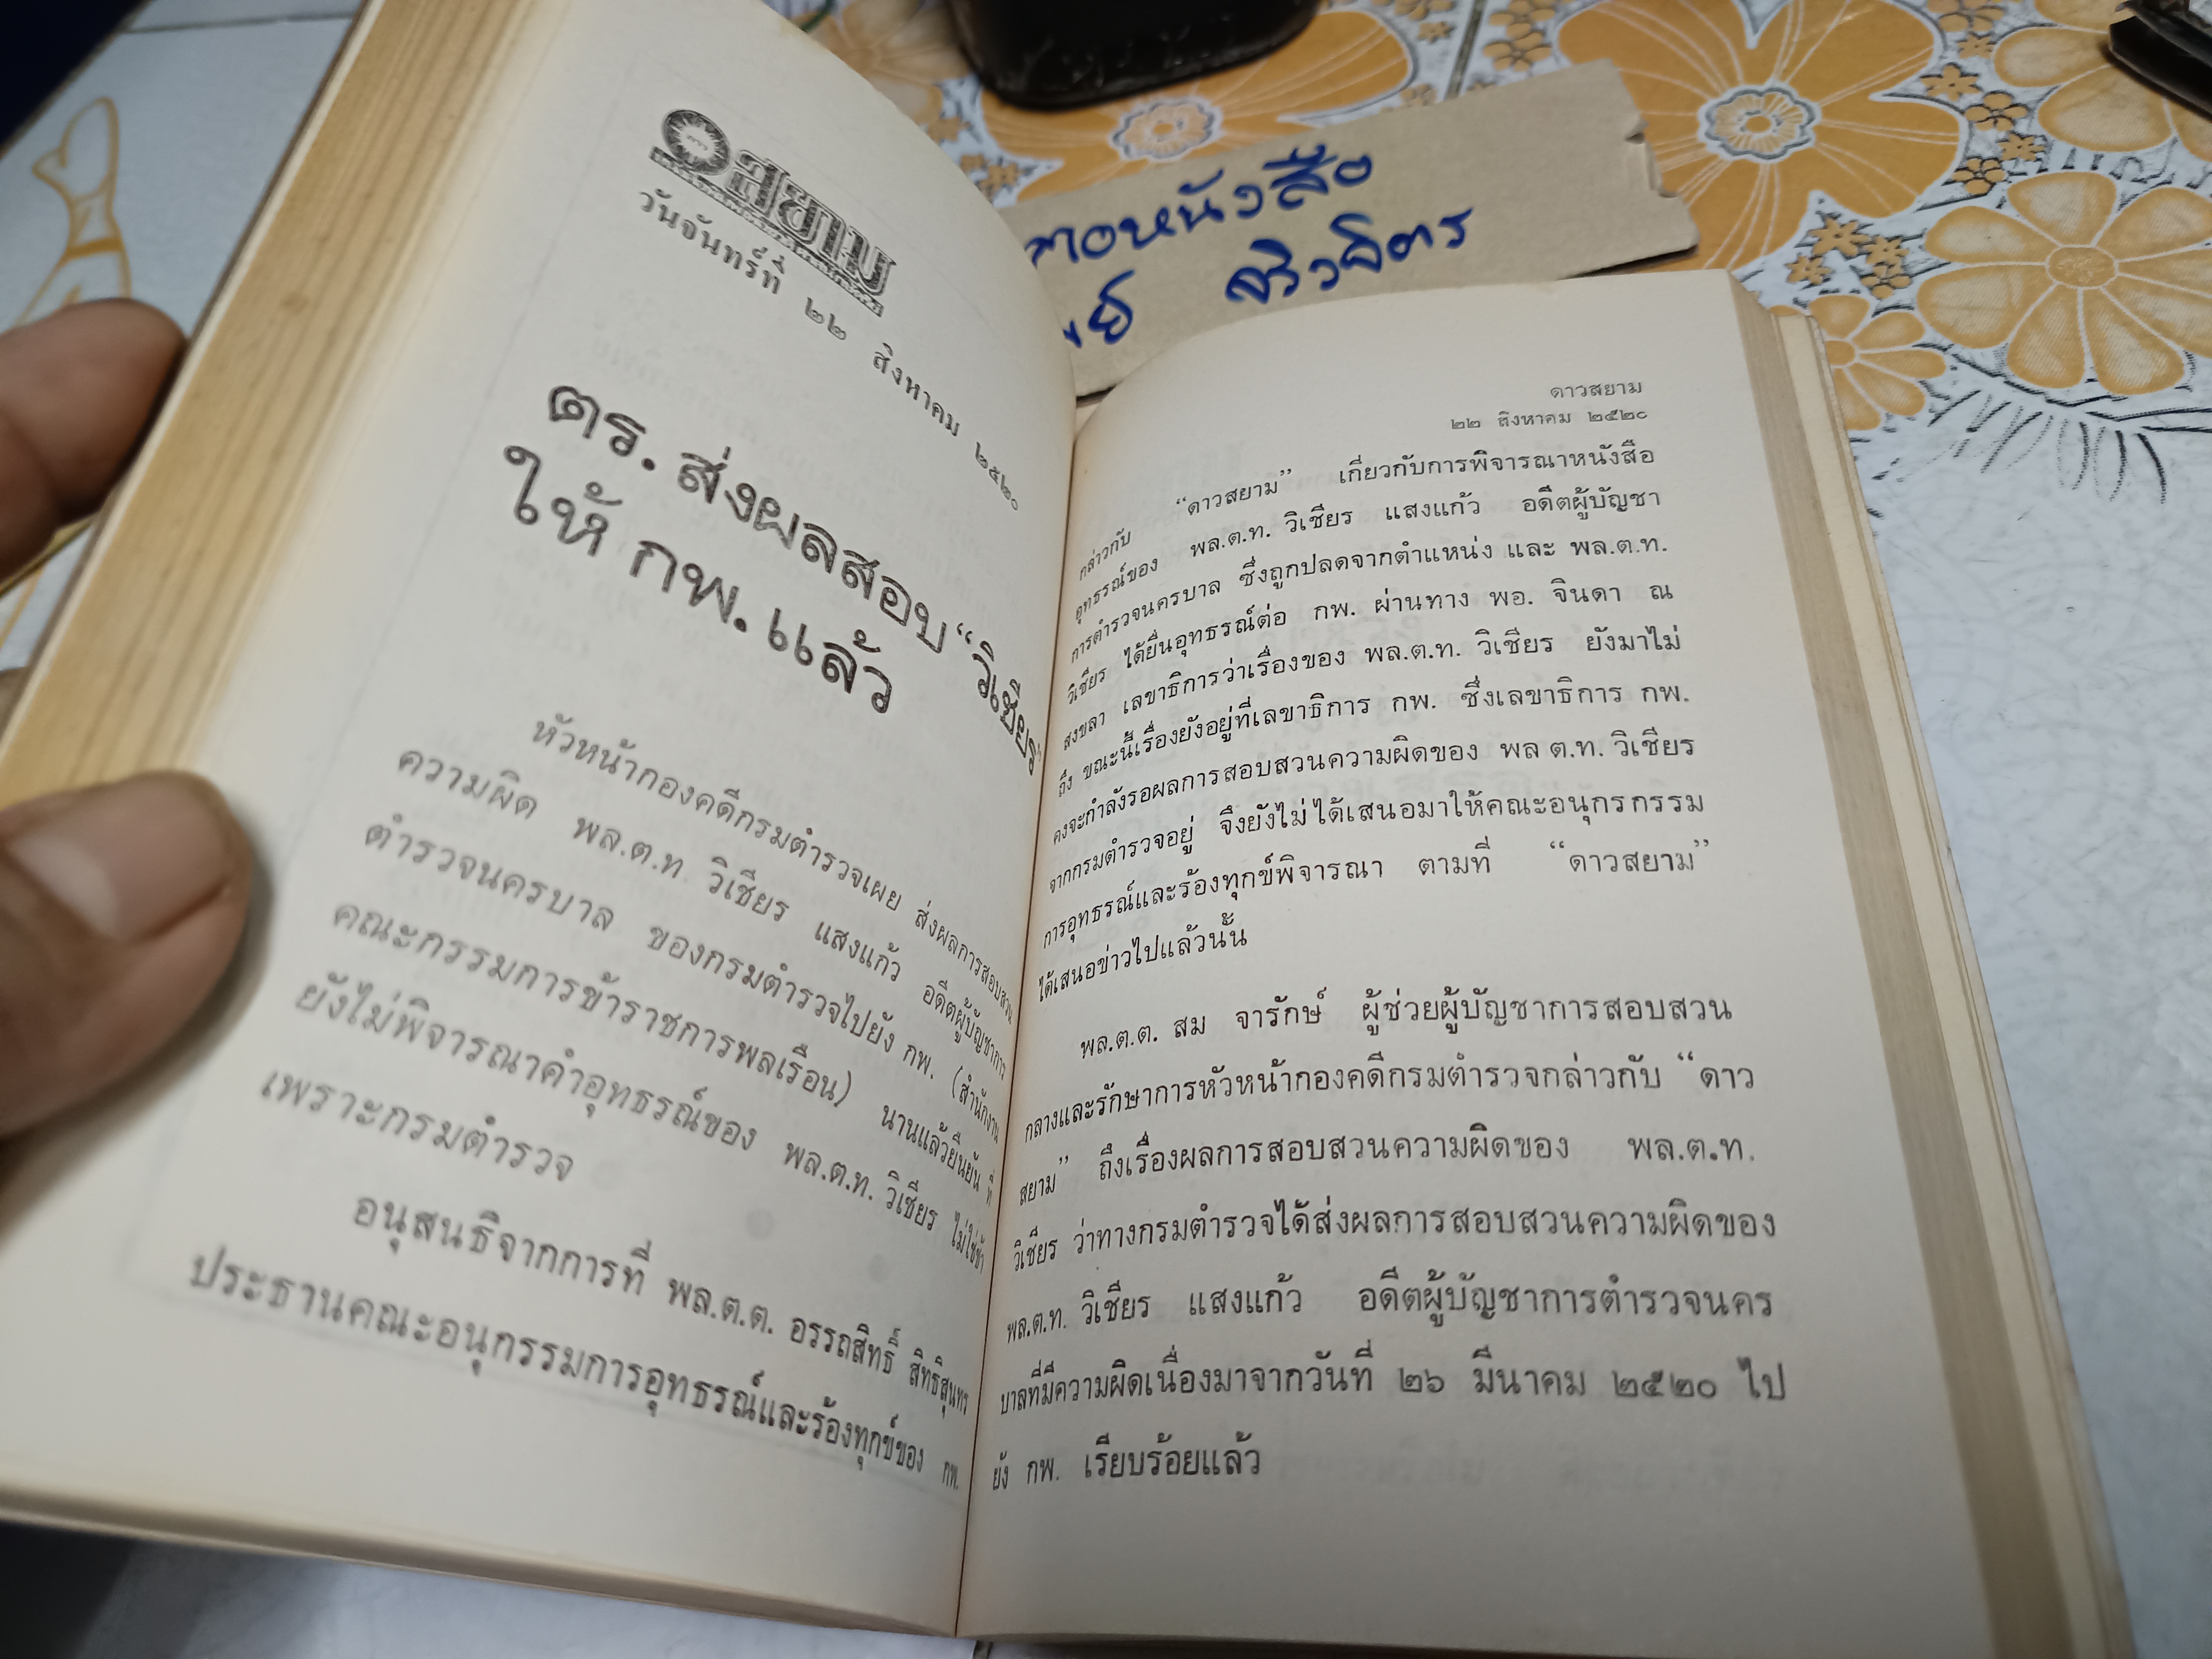 สยาม
วันจันทร์ที่ ๒๒ สิงหาคม ๒๕๒๐
ตร. ส่งผลสอบ “วิเชียร”
ให้ กพ. แล้ว
หัวหน้ากองคดีกรมตำรวจเผย ส่งผลการสอบสวน
ความผิด พล.ต.ท. วิเชียร แสงแก้ว อดีตผู้บัญชาการ
ตำรวจนครบาล ของกรมตำรวจไปยัง กพ. (สำนักงาน
คณะกรรมการข้าราชการพลเรือน) นานแล้วยืนยัน ที่
ยังไม่พิจารณาคำอุทธรณ์ของ พล.ต.ท. วิเชียร ไม่ใช่ช้า
เพราะกรมตำรวจ
อนุสนธิจากการที่ พล.ต.ต. อรรถสิทธิ์ สิทธิสุนทร
ประธานคณะอนุกรรมการอุทธรณ์และร้องทุกข์ของ กพ.
หนังสือ
ศิวจิตร
ดาวสยาม
๒๒ สิงหาคม ๒๕๒๐
กล่าวกับ “ดาวสยาม” เกี่ยวกับการพิจารณาหนังสือ
อุทธรณ์ของ พล.ต.ท. วิเชียร แสงแก้ว อดีตผู้บัญชา
การตำรวจนครบาล ซึ่งถูกปลดจากตำแหน่ง และ พล.ต.ท.
วิเชียร ได้ยื่นอุทธรณ์ต่อ กพ. ผ่านทาง พอ. จินดา ณ
สงขลา เลขาธิการว่าเรื่องของ พล.ต.ท. วิเชียร ยังมาไม่
ถึง ขณะนี้เรื่องยังอยู่ที่เลขาธิการ กพ. ซึ่งเลขาธิการ กพ.
คงจะกำลังรอผลการสอบสวนความผิดของ พล ต.ท. วิเชียร
จากกรมตำรวจอยู่ จึงยังไม่ได้เสนอมาให้คณะอนุกรกรรม
การอุทธรณ์และร้องทุกข์พิจารณา ตามที่ “ดาวสยาม”
ได้เสนอข่าวไปแล้วนั้น
พล.ต.ต. สม จารักษ์ ผู้ช่วยผู้บัญชาการสอบสวน
กลางและรักษาการหัวหน้ากองคดีกรมตำรวจกล่าวกับ “ดาว
สยาม” ถึงเรื่องผลการสอบสวนความผิดของ พล.ต.ท.
วิเชียร ว่าทางกรมตำรวจได้ส่งผลการสอบสวนความผิดของ
พล.ต.ท. วิเชียร แสงแก้ว อดีตผู้บัญชาการตำรวจนคร
บาลที่มีความผิดเนื่องมาจากวันที่ ๒๖ มีนาคม ๒๕๒๐ ไป
ยัง กพ. เรียบร้อยแล้ว